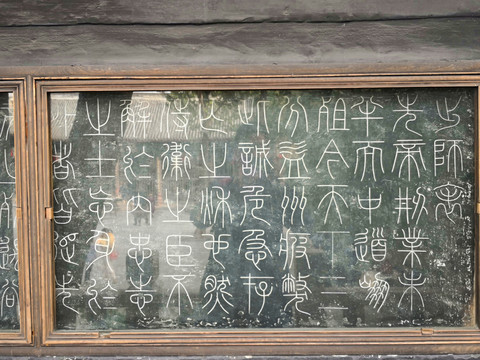 出師表
先帝創業未
半而中道崩
殂今天下三
分益州疲弊
此誠危急存
亡之秋也然
侍衛之臣不
懈於內忠志
之士忘身於
外者皆追先
帝之殊遇欲